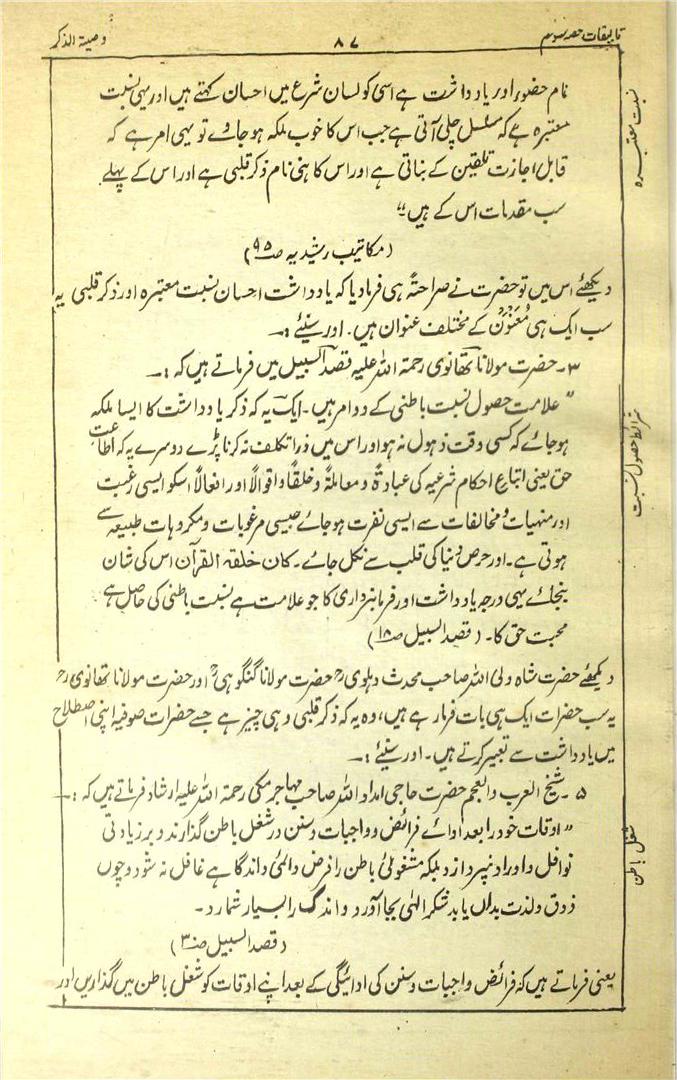 تالیفات حصہ سوم ۸۷ وصیۃ الذکر
نام حضور اور یادداشت ہے اسی کو لسان شرع میں احسان کہتے ہیں اور یہی نسبت
معتبرہ ہے کہ مسلسل چلی آتی ہے جب اس کا خوب ملکہ ہو جاوے تو یہی امر ہے کہ
قابل اجازت تلقین کے بناتی ہے اور اس کا ہی نام ذکر قلبی ہے اور اس کے پہلے
سب مقدمات اس کے ہیں"
(مکاتیب رشیدیہ ص۹۵)
دیکھئے اس میں تو حضرت نے صراحتہً ہی فرمادیا کہ یادداشت احسان نسبت معتبرہ اور ذکر قلبی یہ
سب ایک ہی مُعَنوَن کے مختلف عنوان ہیں۔ اور سنیئے :۔
۳۔ حضرت مولانا تھانوی رحمۃ اللہ علیہ قصد السبیل میں فرماتے ہیں کہ :۔
"علامت حصول نسبت باطنی کے دو امر ہیں۔ ایک یہ کہ ذکر یادداشت کا ایسا ملکہ
ہو جائے کہ کسی وقت ذہول نہ ہو اور اس میں ذرا تکلف نہ کرنا پڑے دوسرے یہ کہ اطاعت
حق یعنی اتباع احکام شرعیہ کی عبادۃً و معاملۃً و خلقاً و اقوالاً اور افعالاً اسکو ایسی رغبت
اور منہیات و مخالفات سے ایسی نفرت ہو جائے جیسی مرغوبات و مکروہات طبیعہ سے
ہوتی ہے۔ اور حرص دنیا کی قلب سے نکل جائے۔ کان خلقہ القرآن اس کی شان
بنجائے یہی درجہ یادداشت اور فرمانبرداری کا جو علامت ہے نسبت باطنی کی حاصل ہے
محبت حق کا۔ (قصد السبیل ص۱۸)
دیکھئے حضرت شاہ ولی اللہ صاحب محدث دہلویؒ حضرت مولانا گنگوہیؒ اور حضرت مولانا تھانویؒ
یہ سب حضرات ایک ہی بات فرما رہے ہیں، وہ یہ کہ ذکر قلبی وہی چیز ہے جسے حضرات صوفیہ اپنی اصطلاح
میں یادداشت سے تعبیر کرتے ہیں۔ اور سنیئے :۔
۵۔ شیخ العرب والعجم حضرت حاجی امداد اللہ صاحب مہاجر مکی رحمۃ اللہ علیہ ارشاد فرماتے ہیں کہ :۔
"اوقات خود را بعد ادائے فرائض و واجبات و سنن در شغل باطن گذارند و بر زیادتی
نوافل و اوراد نپردازد بلکہ مشغولیٔ باطن را فرض دائمی داند گاہے غافل نہ شود و چوں
ذوق و لذت بداں یابد شکر الٰہی بجا آورد و اندک را بسیار شمارد۔
(قصد السبیل ص۳۰)
یعنی فرماتے ہیں کہ فرائض واجبات و سنن کی ادائیگی کے بعد اپنے اوقات کو شغل باطن میں گذاریں اور
نسبت معتبرہ
شرائط حصول نسبت
شغل باطن